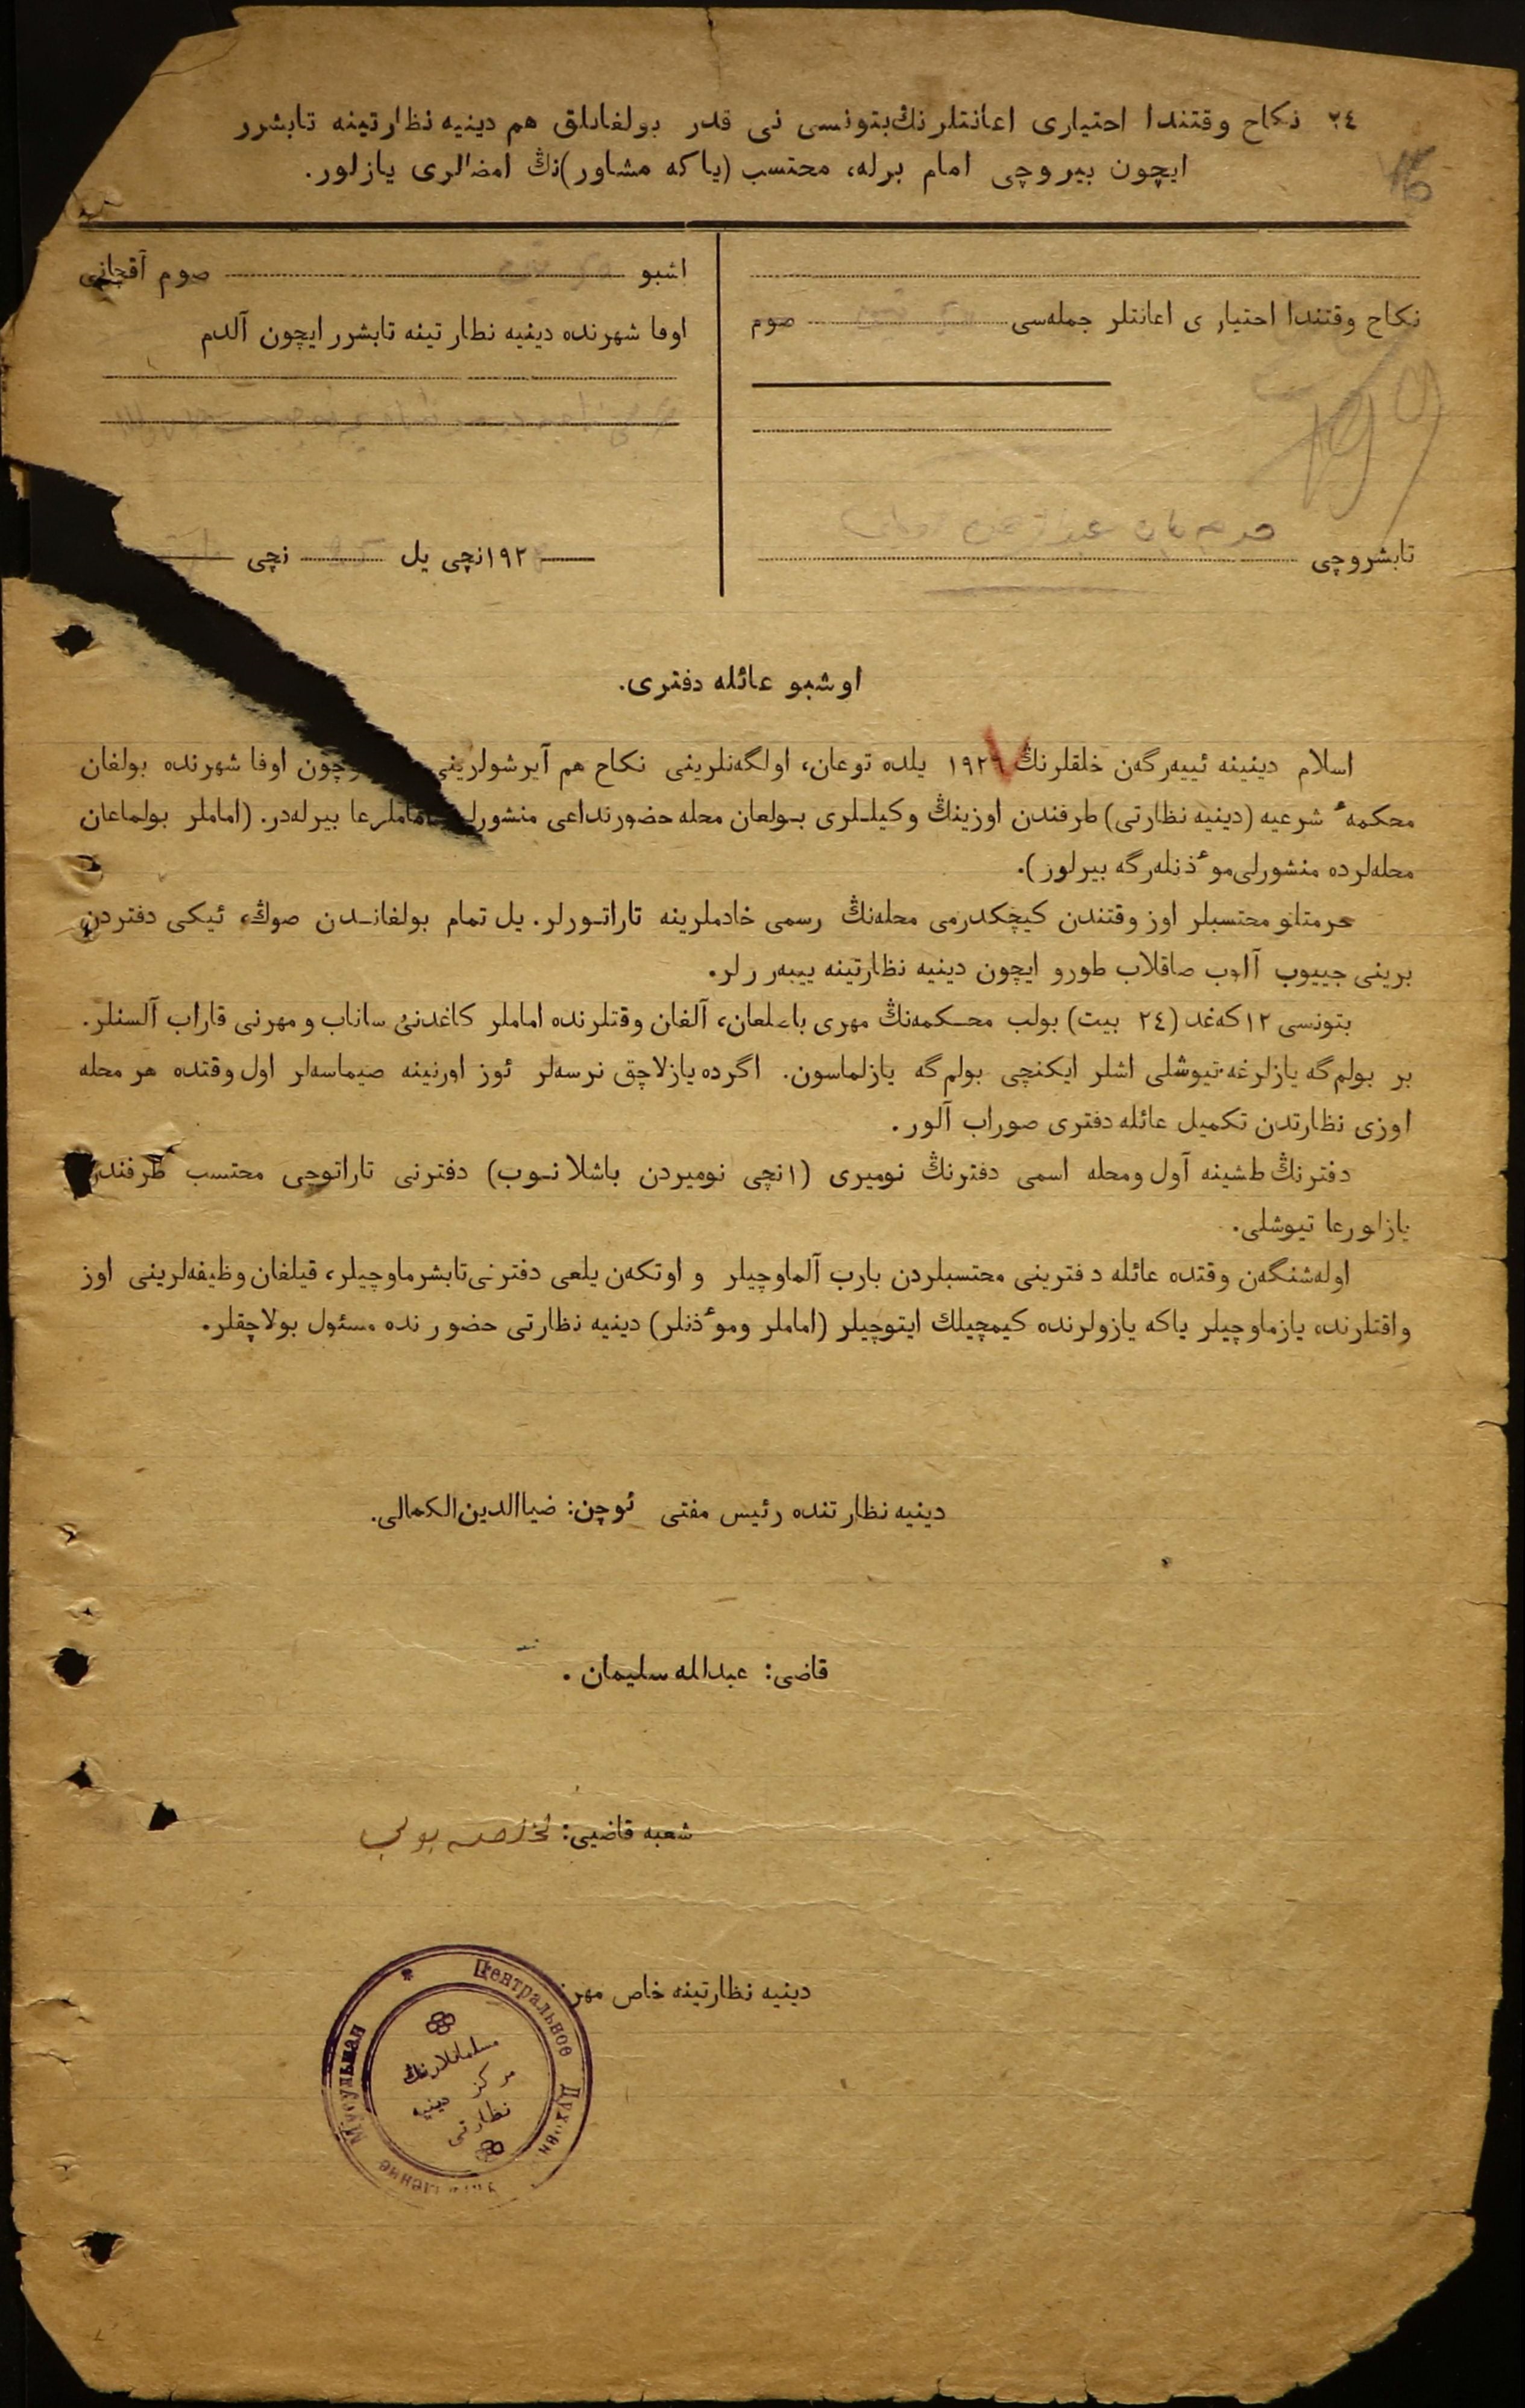 ٢٤ نكاح وقتندا احتياری اعانتلرنڭ بتونسی نی قدر بولغانلق هم دينيه نظارتينه تابشرر
ايچون بيروچی امام برله، محتسب (ياكه مشاور)نڭ امضالری يازلور.
نكاح وقتندا احتياری اعانتلر جمله‌سی صوم
تابشروچی
اشبو صوم آقچانی
اوفا شهرنده دينيه نظارتينه تابشرر ايچون آلدم
١٩٢ نچی يل نچی
اوشبو عائله دفتری.
اسلام دينينه ئييه‌رگه‌ن خلقلرنڭ ١٩٢٦ يلده توعان، اولگه‌نلرينی نكاح هم آيرشولرينی اوفا شهرنده بولغان
محكمهٔ شرعيه (دينيه نظارتی) طرفندن اوزينڭ وكيللری بولعان محله حضورنداعی منشورلی اماملرعا بيرله‌در. (اماملر بولماعان
محله‌لرده منشورلی موٴذنله‌رگه بيرلور).
حرمتلو محتسبلر اوز وقتندن كيچكدرمی محله‌نڭ رسمی خادملرينه تاراتورلر. يل تمام بولغانـدن صوڭ، ئيكی دفتردن
برينی جييوب آلوب صاقلاب طورو ايچون دينيه نظارتينه ييبه‌ررلر.
بتونسی ١٢ كه‌غد (٢٤ بيت) بولب محـكمه‌نڭ مهری باعلعان، آلغان وقتلرنده اماملر كاغدنی ساناب و مهرنی قاراب آلسنلر.
بر بولم‌گه يازلرغه تيوشلی اشلر ايكنچی بولم‌گه يازلماسون. اگرده يازلاچق نرسه‌لر ئوز اورنينه صيماسه‌لر اول وقتده هر محله
اوزی نظارتدن تكميل عائله دفتری صوراب آلور.
دفترنڭ طشينه آول و محله اسمی دفترنڭ نوميری (١نچی نوميردن باشلانـوب) دفترنی تاراتوچی محتسب طرفندن
يازلورعا تيوشلی.
اوله‌شنگه‌ن وقتده عائله دفترينی محتسبلردن بارب آلماوچيلر و اوتكه‌ن يلعی دفترنی تابشرماوچيلر، قيلغان وظيفه‌لرينی اوز
واقتلرنده يازماوچيلر ياكه يازولرنده كيمچيلك ايتوچيلر (اماملر وموٴذنلر) دينيه نظارتی حضورنده مسئول بولاچقلر.
دينيه نظارتنده رئيس مفتی ئوچن: ضياالدين الكمالی.
قاضی: عبدالله سليمان.
شعبه قاضيی:
دينيه نظارتينه خاص مهر
Центральное Духовн Мусульман
مسلمانلارنڭ
مركز دينيه
نظارتی